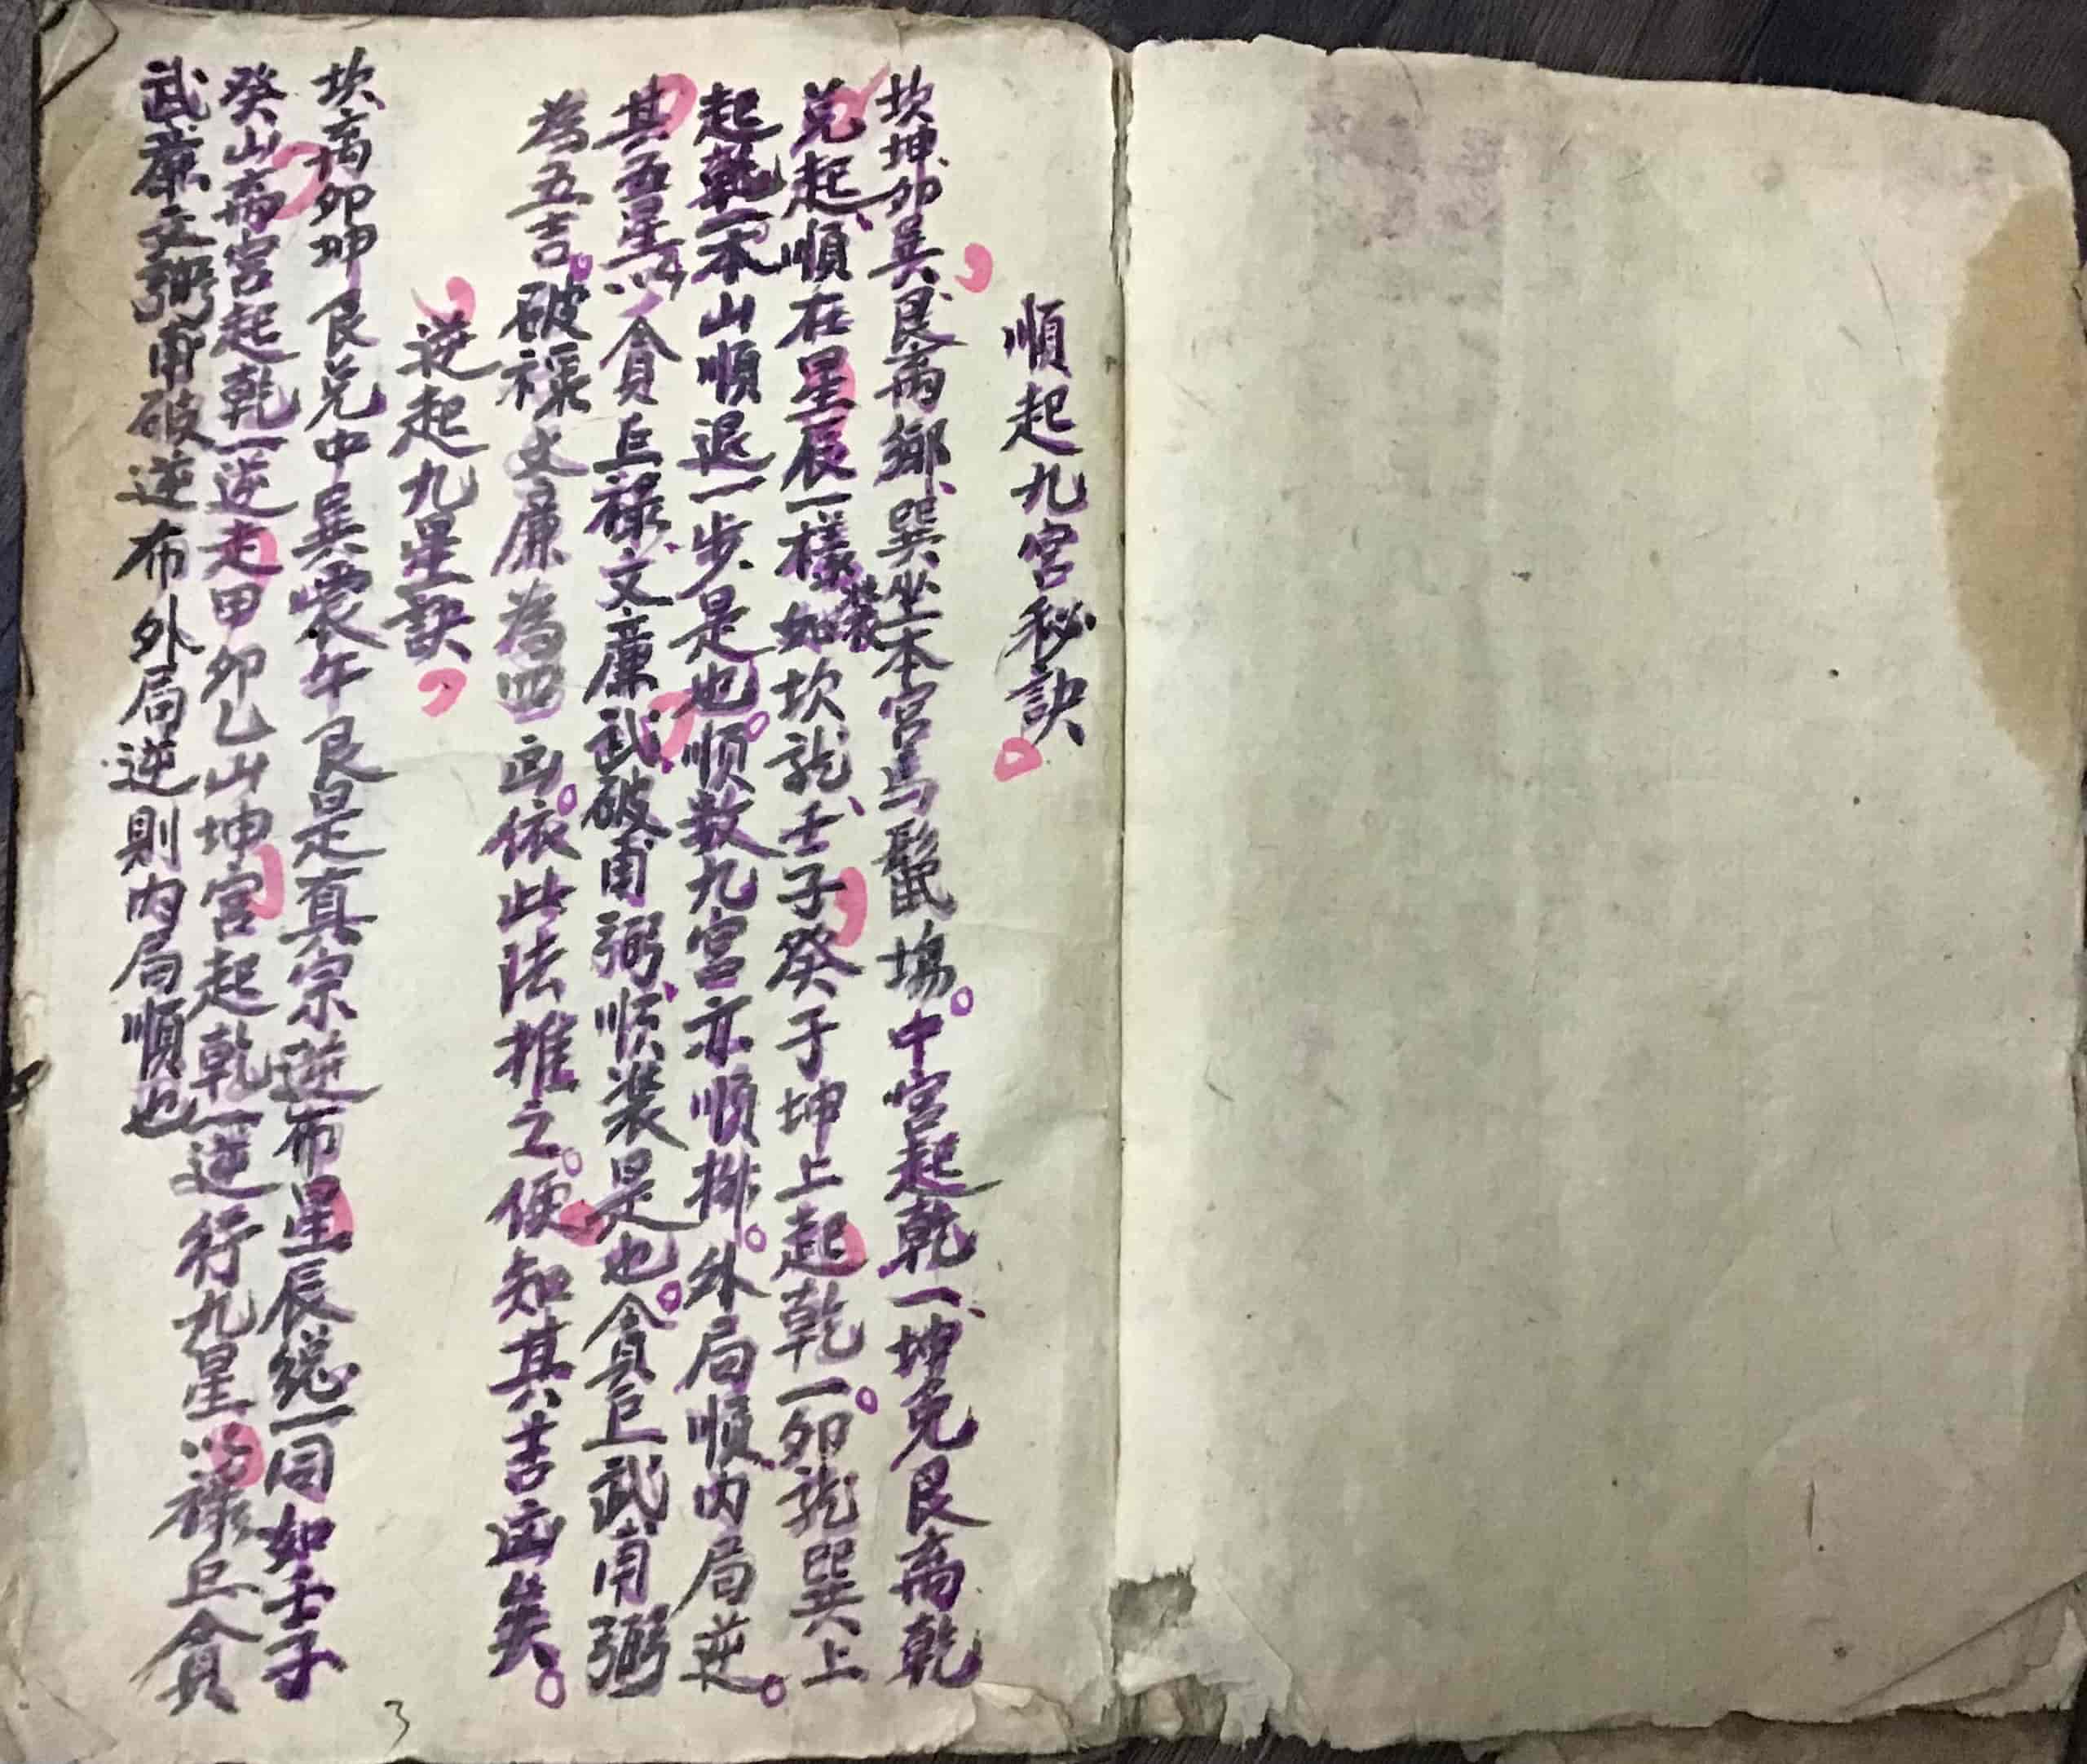 順起九宮秘訣。
坎坤卯巽艮离鄉、巽坐本宮馬鬣塲。中宮起乾一、坤兌艮离乾
兌起、順在星辰一樣裝如坎龍、壬子癸于坤上起乾一。卯龍巽上
起乾一本山順退一步是也。顺数九宮亦順排。外局順内局逆。
其五星以貪巨禄、文廉武破甫弼、顺装是也。貪巨武甫弼
為五吉。破禄文廉為四凶。依此法推之。便知其吉凶矣。
逆起九星訣
坎离卯坤艮兌中巽震午艮是真宗逆布星辰総一同如壬子
癸山离宮起乾一逆走甲卯乙山坤宮起乾一逆行九星以禄巨貪
武廉文弼甫破逆布外局逆則内局順也
3